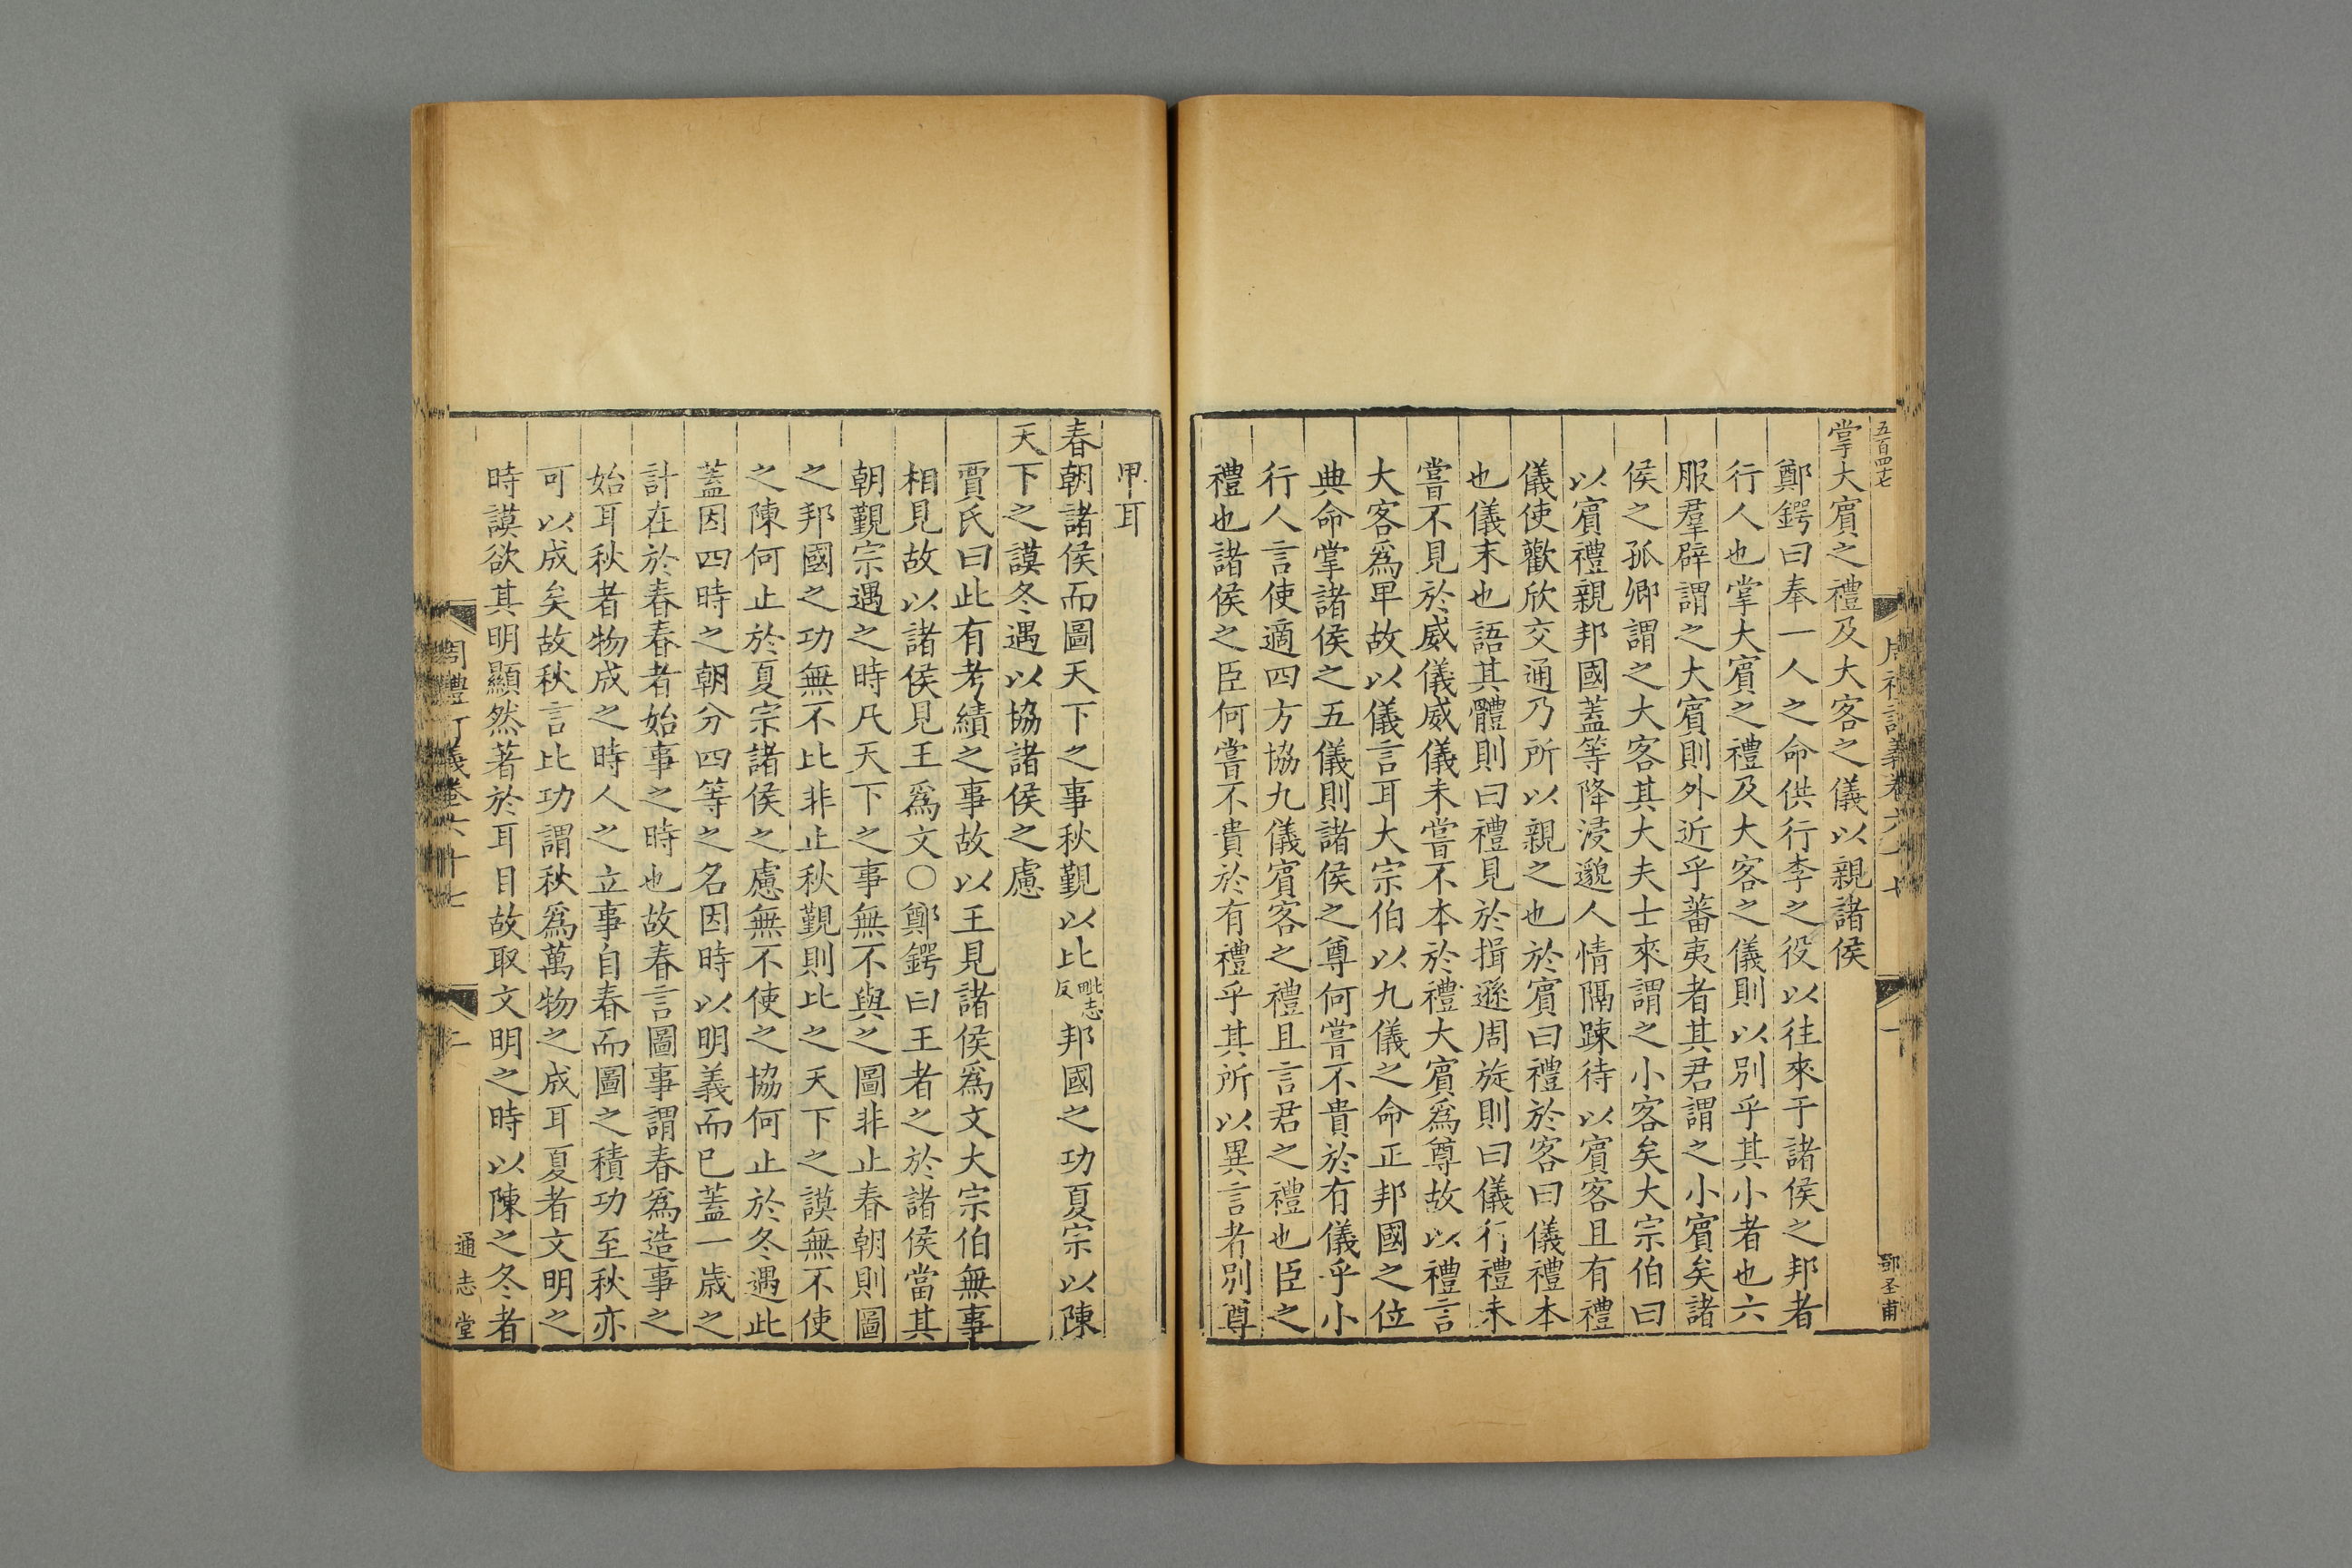 五百四十七
掌大賔之禮及大客之儀以親諸侯
鄭鍔曰奉一人之命供行李之役以往來于諸侯之邦者
行人也掌大賔之禮及大客之儀則以別乎其小者也六
服羣辟謂之大賔則外近乎蕃夷者其君謂之小賔矣諸
侯之孤卿謂之大客其大夫士來謂之小客矣大宗伯曰
以賔禮親邦國蓋等降浸邈人情隔踈待以賔客且有禮
儀使歡欣交通乃所以親之也於賔曰禮於客曰儀禮本
也儀末也語其體則曰禮見於揖遜周旋則曰儀行禮未
嘗不見於威儀威儀未嘗不本於禮大賔爲尊故以禮言
大客爲𤰞故以儀言耳大宗伯以九儀之命正邦國之位
典命掌諸侯之五儀則諸侯之尊何嘗不貴於有儀乎小
行人言使適四方協九儀賔客之禮且言君之禮也臣之
禮也諸侯之臣何嘗不貴於有禮乎其所以異言者別尊
鄧圣甫
𤰞耳
春朝諸侯而圖天下之事秋覲以比毗志反邦國之功夏宗以陳
天下之謨冬遇以協諸侯之慮
賈氏曰此有考績之事故以王見諸侯爲文大宗伯無事
相見故以諸侯見王爲文○鄭鍔曰王者之於諸侯當其
朝覲宗遇之時凡天下之事無不與之圖非止春朝則圖
之邦國之功無不比非止秋覲則比之天下之謨無不使
之陳何止於夏宗諸侯之慮無不使之協何止於冬遇此
蓋因四時之朝分四等之名因時以明義而已蓋一歲之
計在於春春者始事之時也故春言圖事謂春爲造事之
始耳秋者物成之時人之立事自春而圖之積功至秋亦
可以成矣故秋言比功謂秋爲萬物之成耳夏者文明之
時謨欲其明顯然著於耳目故取文明之時以陳之冬者
周禮訂義卷六十七
二
通志堂